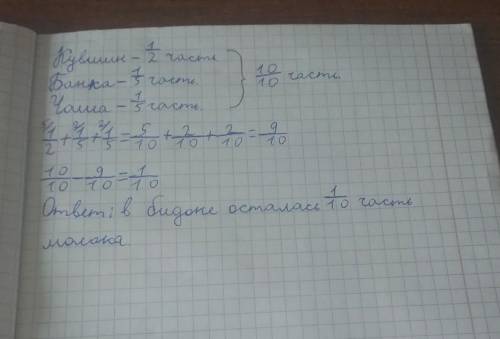 Кувшин – 1/2 часть
Банка – 1/5 часть } 10/10 часть
Чаша – 1/5 часть
5/1/2 + 2/1/5 + 2/1/5 = 5/10 + 2/10 + 2/10 = 9/10
10/10 – 9/10 = 1/10
Ответ: в бидоне осталась 1/10 часть
молока